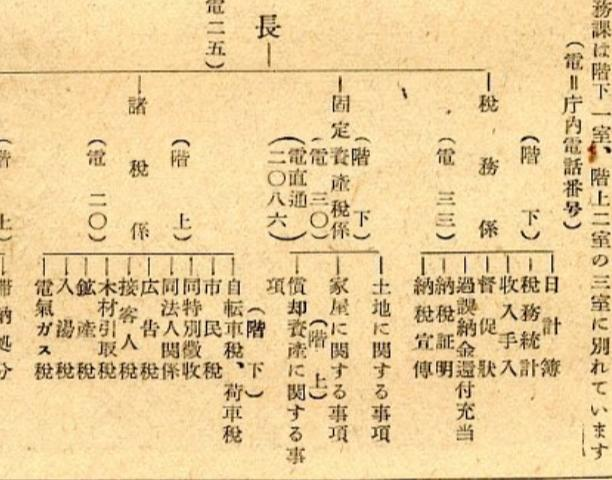 務課は階下一室、階上二室の三室に別れています
（電＝庁内電話番号）
長
電二五）
税務係
（階下）
（電三三）
日計簿
税務統計
収入手入
督促狀
過誤納金還付充当
納税証明
納税宣傳
固定資産税係
（階下）
（電三〇）
（電直通二〇八六）
土地に関する事項
家屋に関する事項
（階上）
償却資産に関する事項
（階下）
諸税係
（階上）
（電二〇）
自転車税、荷車税
市民税
同特別徴收
同法人関係
広告税
接客人税
木材引取税
鉱産税
入湯税
電氣ガス税
（階上）
滞納処分